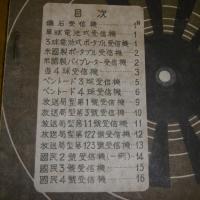 目次
鑛石受信機 1
單球電池式受信機 1
3球電池式ポータブル受信機 1
米國製ポータブル受信機 2
米國製バイブレーター受信機 2
並4球受信機 3
ペントード3球受信機 5
ペントード4球受信機 6
放送局型第1號受信機 9
放送局型第3號受信機 10
放送局型第11號受信機 11
放送局型第122號受信機 12
放送局型第123號受信機 13
國民2號受信機(一例) 14
國民3號受信機 15
國民4號受信機 16